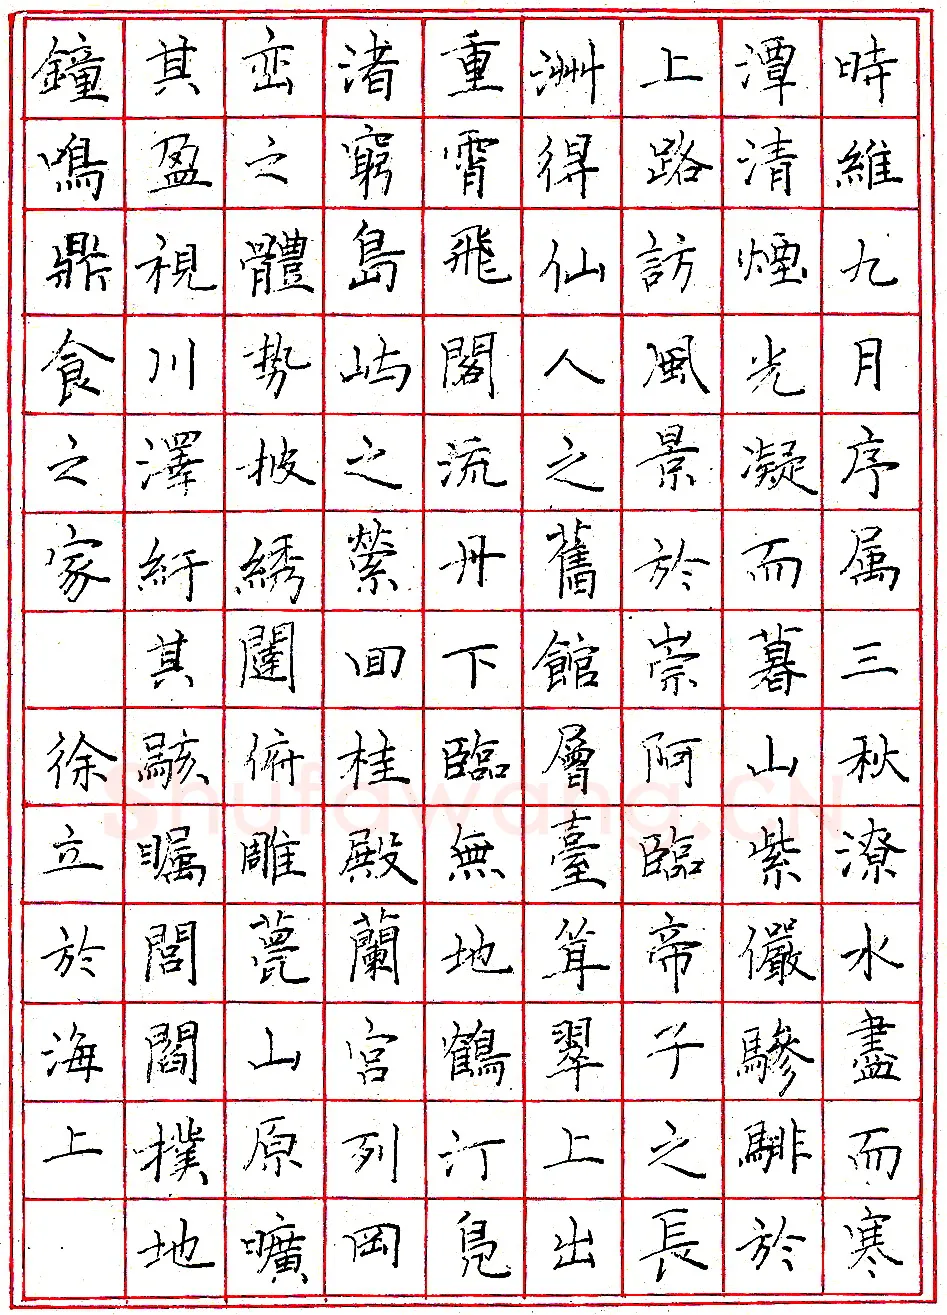 時維九月序属三秋潦水盡而寒
潭清煙光凝而暮山紫儼驂騑於
上路訪風景於崇阿臨帝子之長
洲得仙人之舊館層臺耸翠上出
重霄飛閣流丹下臨無地鶴汀凫
渚窮島屿之縈回桂殿蘭宮列岡
峦之體势披綉闥俯雕甍山原曠
其盈視川澤紆其駭瞩閭閻撲地
鐘鳴鼎食之家 徐立於海上
Shufawang.CN